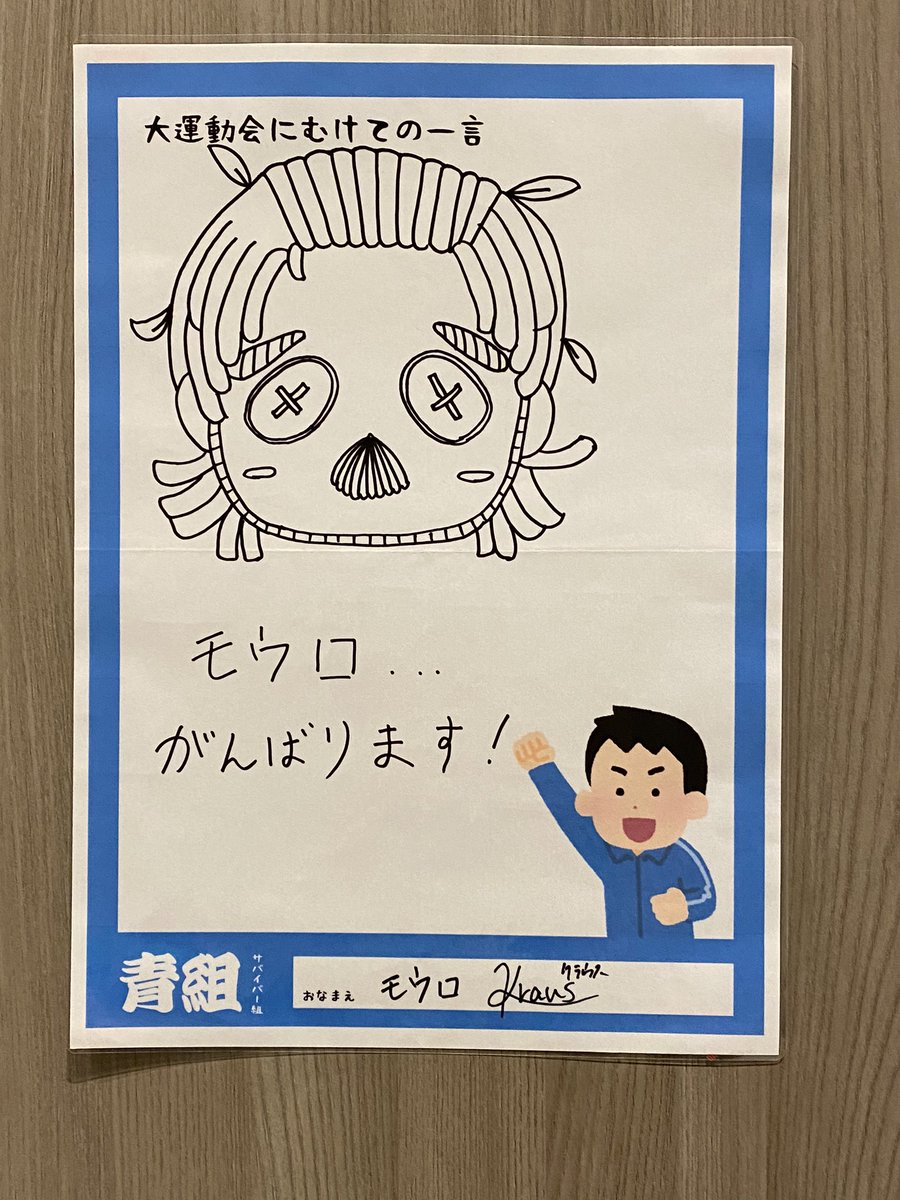 大運動会にむけての一言
モウロ...
がんばります!
青組
サバイバー組
おなまえ
モウロ
Kraus
クラウス